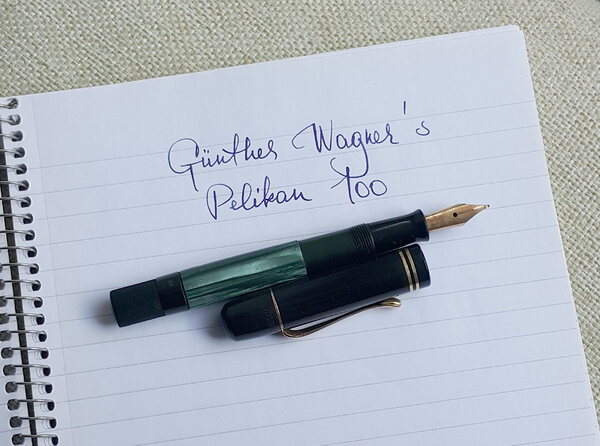 Günther Wagner's
Pelikan 100